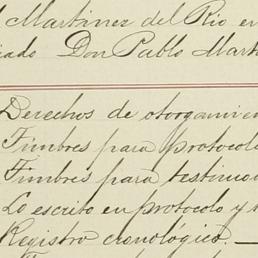 Martinez del Rio en
Don Pablo Mart
Derechos de otorgamien
Timbres para protocolo
Timbres para testimo
Lo escrito en protocolo y
Registro cronológico.